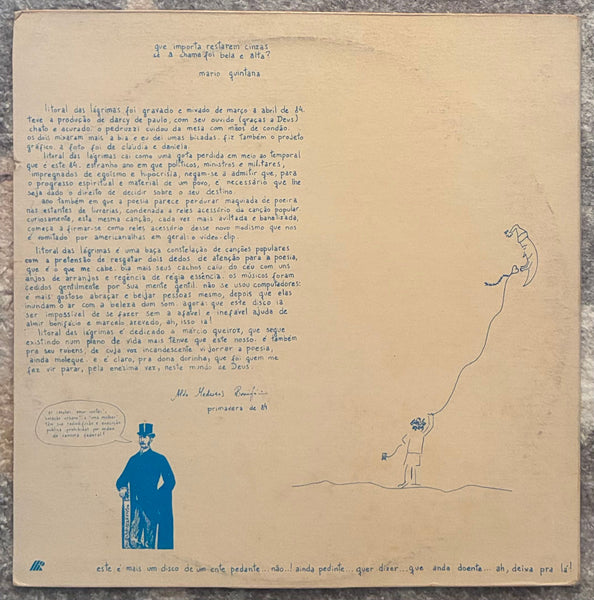 que importa restarem cinzas
se a chama foi bela e alta?
mario quintana
litoral das lágrimas foi gravado e mixado de março a abril de 84.
teve a produção de darcy de paulo, com seu ouvido (graças a Deus)
chato e acurado. o pedruzzi cuidou da mesa com mãos de condão.
os dois mixaram mais a bia e eu dei umas bicadas. fiz também o projeto
gráfico. a foto foi de cláudia e daniela.
litoral das lágrimas cai como uma gota perdida em meio ao temporal
que é este 84. estranho ano em que políticos, ministros e militares,
impregnados de egoísmo e hipocrisia, negam-se a admitir que, para
o progresso espiritual e material de um povo, é necessário que lhe
seja dado o direito de decidir sobre o seu destino.
ano também em que a poesia parece perdurar maquiada de poeira
nas estantes de livrarias, condenada a reles acessório da canção popular.
curiosamente, esta mesma canção, cada vez mais aviltada e banalizada,
começa a firmar-se como reles acessório desse novo modismo que nos
é vomitado por americanalhas em geral: o vídeo-clip
litoral das lágrimas é uma baça constelação de canções populares
com a pretensão de resgatar dois dedos de atenção para a poesia,
que é o que me cabe. bia mais seus cachos caiu do céu com uns
anjos de arranjos e regência de régia essência. os músicos foram
cedidos gentilmente por sua mente gentil. não se usou computadores:
é mais gostoso abraçar e beijar pessoas mesmo, depois que elas
inundam o ar com a beleza dum som. agora: que este disco ia
ser impossível de se fazer sem a afável e inefável ajuda de
almir bonifácio e marcelo azevedo, ah, isso ia!
litoral das lágrimas é dedicado a márcio queiroz, que segue
existindo num plano de vida mais tênue que este nosso. é também
pra seu rubens, de cuja voz incandescente vi jorrar a poesia,
ainda moleque. e é claro, pra dona dorinha, que foi quem me
fez vir parar, pela enezima vez, neste mundo de Deus.
Aldo Medeiros Bonifácio
primavera de 84
as canções
e "uma mulher"
têm sua radiodifusão e execução
pública proibidas por ordem
da censura federal!
este é mais um disco de um ente pedante... não..! ainda pedinte... quer dizer... que anda doente... ah, deixa pra lá!